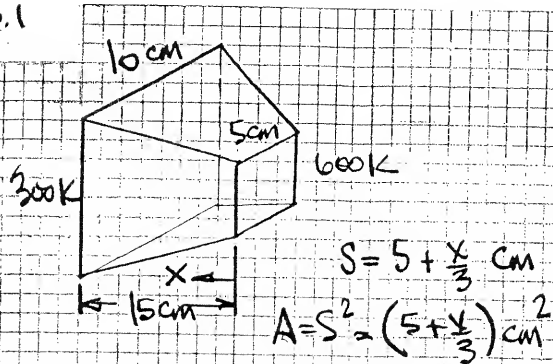 .1
10 cm
5cm
300K
600K
X
15cm
S = 5 + x/3 cm
A=S²=(5+x/3)cm²